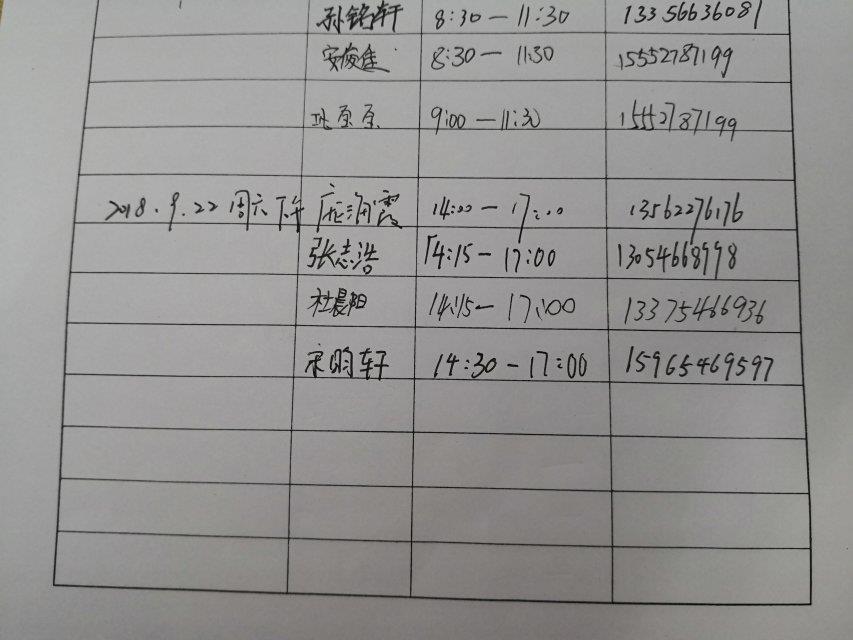 孙铭轩 8:30 — 11:30 13356636081
安俊佳 8:30 — 11:30 15552787199
巩原原 9:00 — 11:30 15552787199
2018.9.22 周六下午 庞润霞 14:00 — 17:00 13562276176
张志浩 14:15 - 17:00 13054668998
杜晨阳 14:15 — 17:00 13375466936
宋昀轩 14:30 - 17:00 15965469597